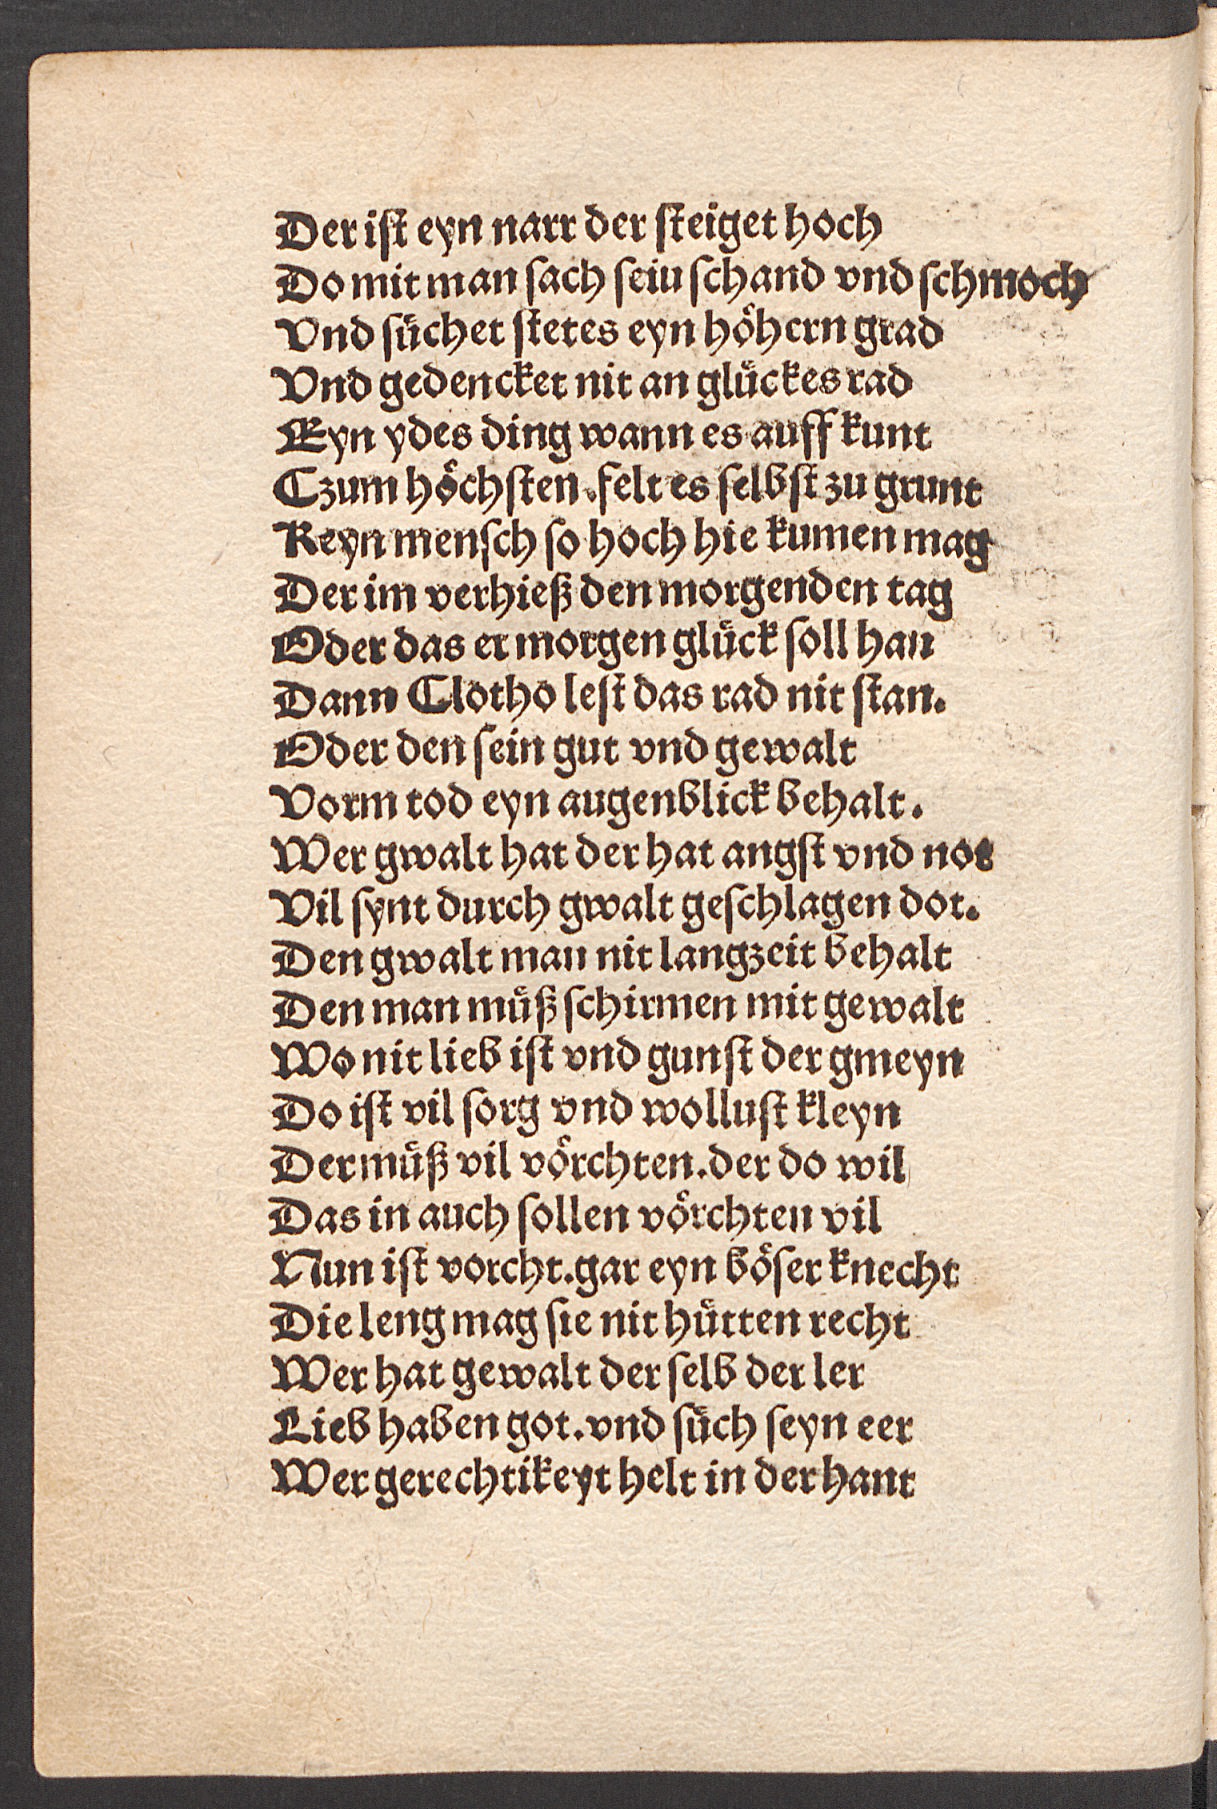 Der iſt eyn narr der ſteiget hoch
Do mit man ſach ſeiu ſchand vnd ſchmoch
Vnd ſuͤchet ſtetes eyn hoͤhern grad
Vnd gedencket nit an gluͤckes rad
Eyn ydes ding wann es auff kunt
Czum hoͤchſten. felt es ſelbſt zu grunt
Keyn menſch ſo hoch hie kumen mag
Der im verhieß den morgenden tag
Oder das er morgen gluͤck ſoll han
Dann Clotho leſt das rad nit ſtan.
Oder den ſein gut vnd gewalt
Vorm tod eyn augenblick behalt.
Wer gwalt hat der hat angſt vnd not
Vil ſynt durch gwalt geſchlagen dot.
Den gwalt man nit langzeit behalt
Den man muͤß ſchirmen mit gewalt
Wo nit lieb iſt vnd gunſt der gmeyn
Do iſt vil ſorg vnd wolluſt kleyn
Der muͤß vil voͤrchten. der do wil
Das in auch ſollen voͤrchten vil
Nun iſt vorcht. gar eyn boͤſer knecht
Die leng mag ſie nit huͤtten recht
Wer hat gewalt der ſelb der ler
Lieb haben got. vnd ſuͤch ſeyn eer
Wer gerechtikeyt helt in der hant